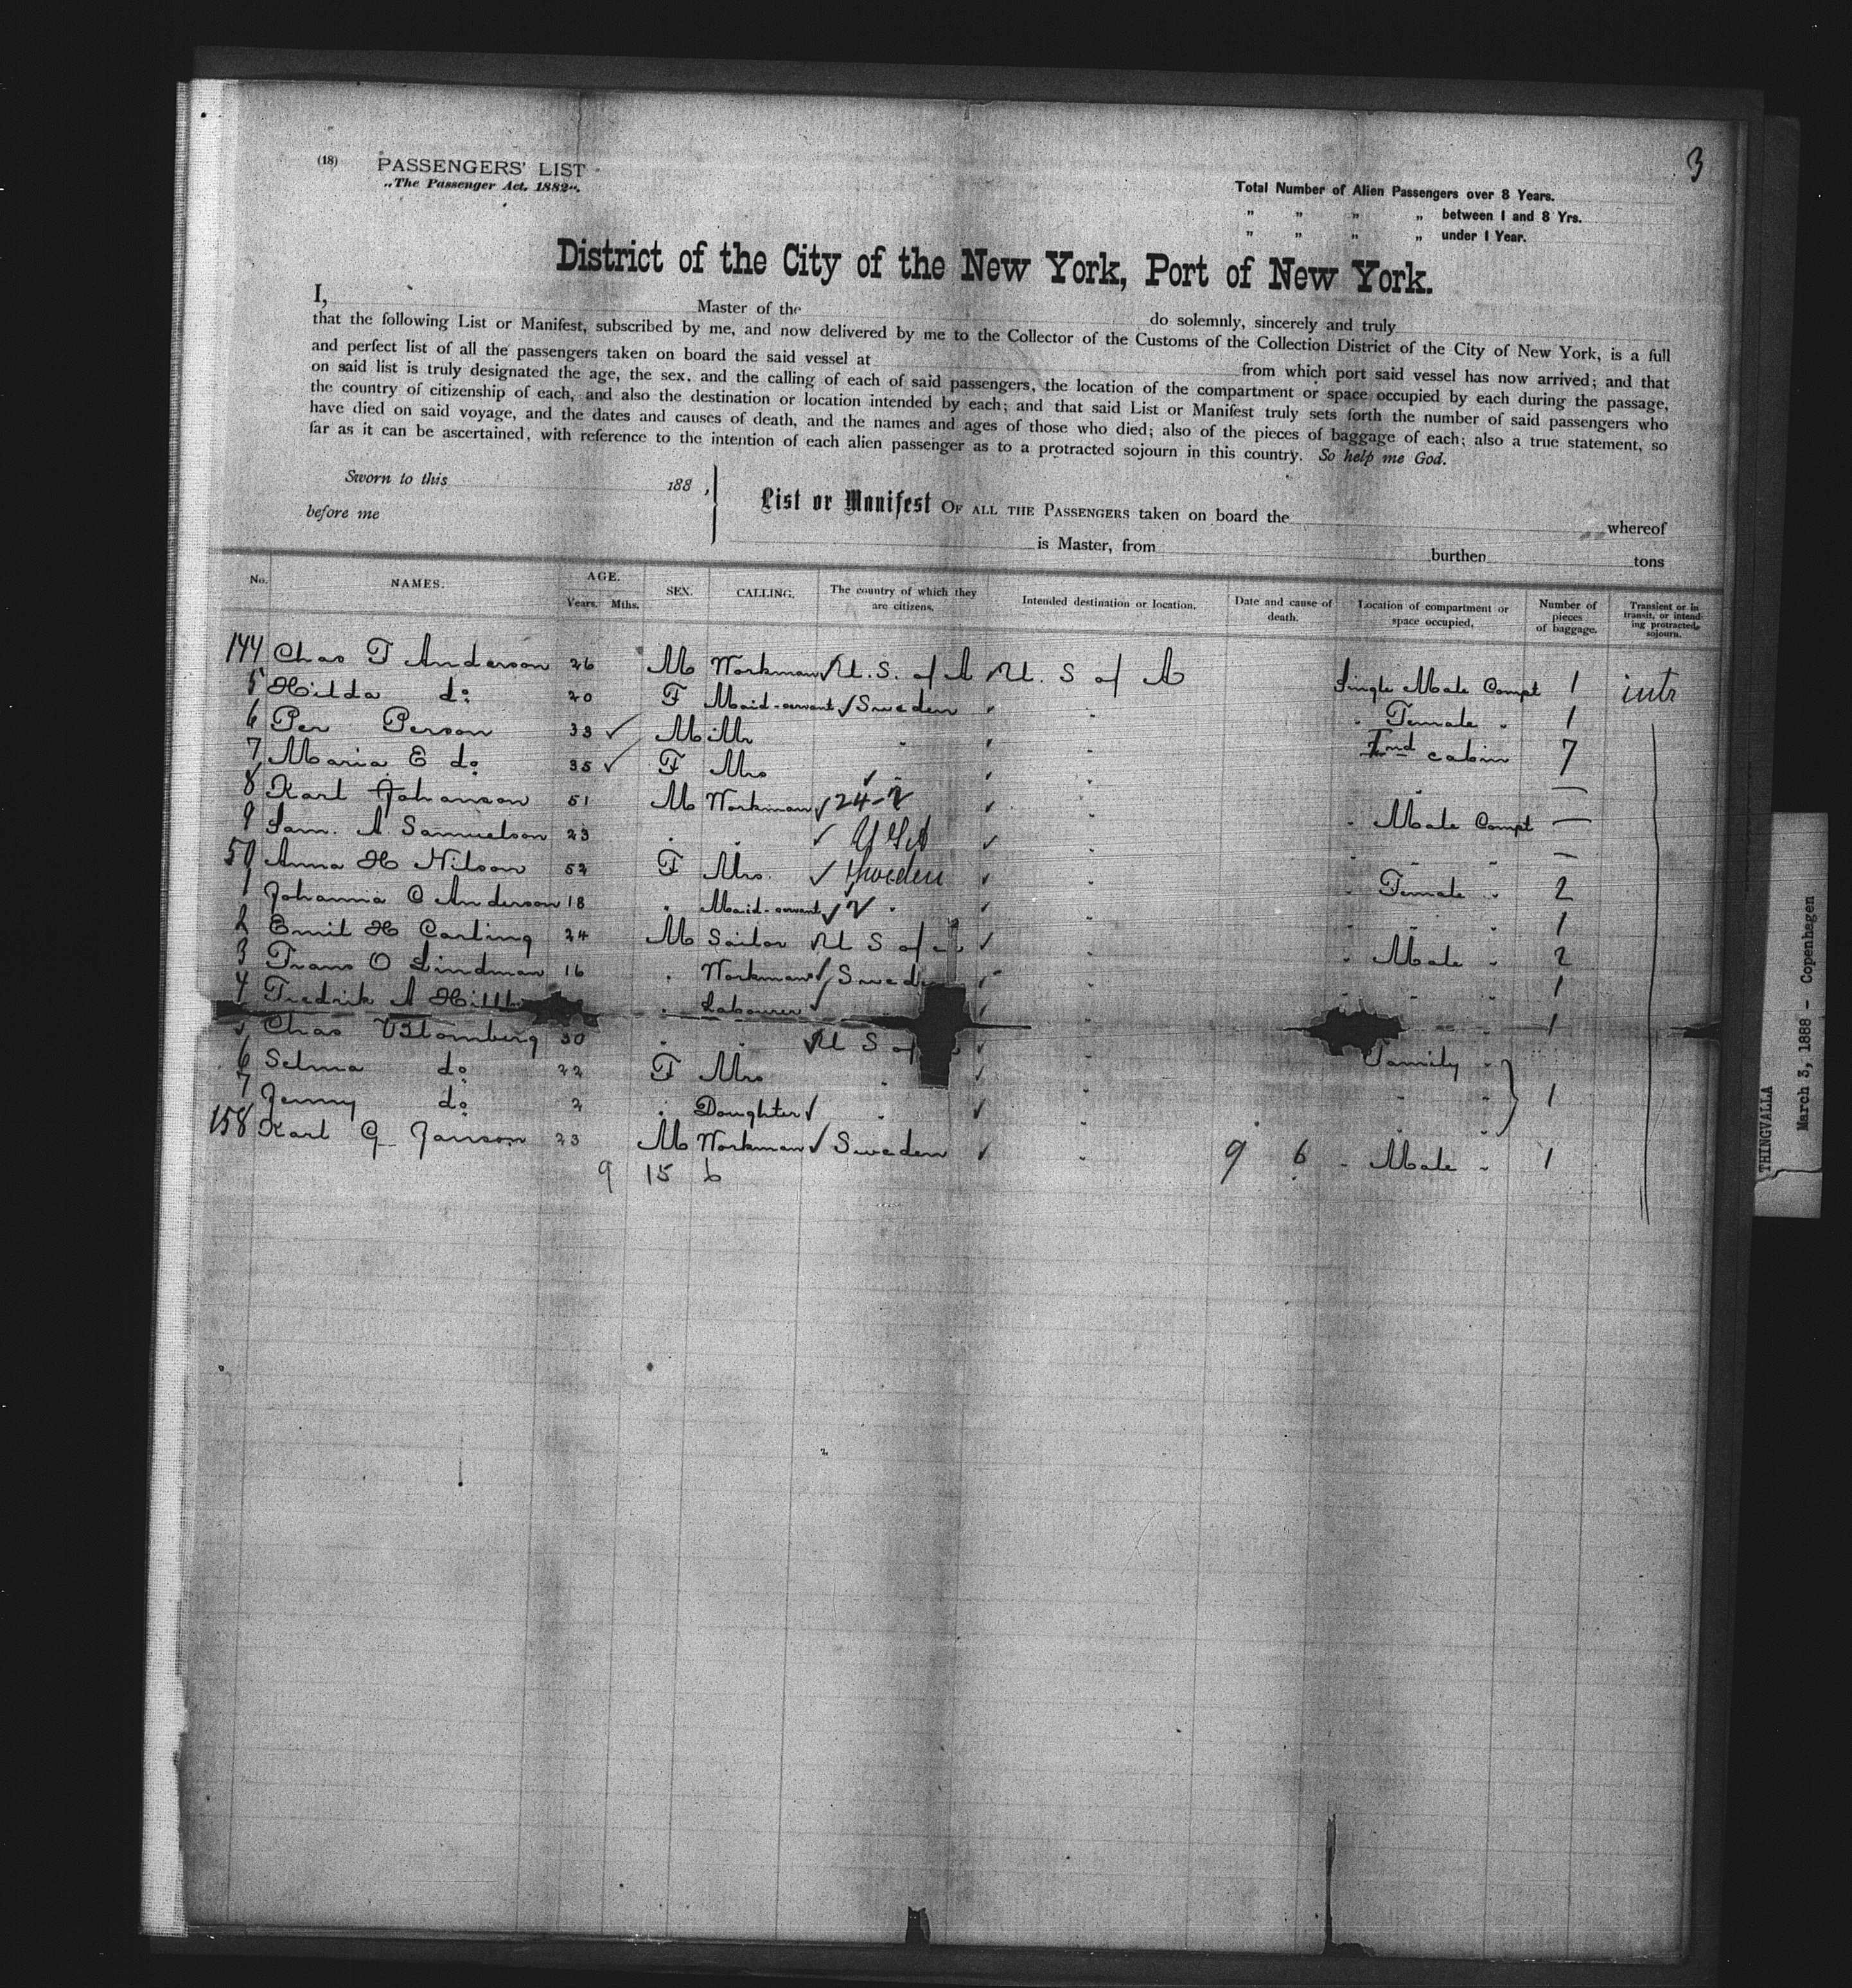 3
(18) PASSENGERS' LIST
„The Passenger Act, 1882".
Total Number of Alien Passengers over 8 Years.
„ „ „ „ between 1 and 8 Yrs.
„ „ „ „ under 1 Year.
District of the City of the New York, Port of New York.
I, Master of the do solemnly, sincerely and truly
that the following List or Manifest, subscribed by me, and now delivered by me to the Collector of the Customs of the Collection District of the City of New York, is a full
and perfect list of all the passengers taken on board the said vessel at from which port said vessel has now arrived; and that
on said list is truly designated the age, the sex, and the calling of each of said passengers, the location of the compartment or space occupied by each during the passage,
the country of citizenship of each, and also the destination or location intended by each; and that said List or Manifest truly sets forth the number of said passengers who
have died on said voyage, and the dates and causes of death, and the names and ages of those who died; also of the pieces of baggage of each; also a true statement, so
far as it can be ascertained, with reference to the intention of each alien passenger as to a protracted sojourn in this country. So help me God.
Sworn to this 188 ,
before me
List or Manifest OF ALL THE PASSENGERS taken on board the whereof
is Master, from burthen tons
No. NAMES. AGE. Years. Mths. SEX. CALLING. The country of which they are citizens. Intended destination or location. Date and cause of death. Location of compartment or space occupied. Number of pieces of baggage. Transient or in transit, or intending protracted sojourn.
144 Chas T Anderson 26 M Workman U.S. of A U. S of A Single Male Compt 1 intr
5 Hilda do 20 F Maid-servant Sweden " " " Female " 1
6 Per Person 33 M Mr " " " cabin 7
7 Maria E do 35 F Mrs " " "
8 Karl Johanson 51 M Workman 24-2 " " Male Compt —
9 Sam. A Samuelson 23 " " U S A " " " " —
50 Anna H Nilson 52 F Mrs. Sweden " " Female " 2
1 Johanna C Anderson 18 " Maid-servant " " " " 1
2 Emil H Carling 24 M Sailor U S of " " Male " 2
3 Frans O Lindman 16 " Workman Swed " " " 1
4 Fredrik A " Labourer " " 1
Chas Blomberg 30 " " U S of " Family "
6 Selma do 22 F Mrs " " " "
7 Jenny do 2 " Daughter " " " " 1
158 Karl G Janson 23 M Workman Sweden " 9 6 " Male " 1
9 15 6
THINGVALLA
March 3, 1888 - Copenhagen